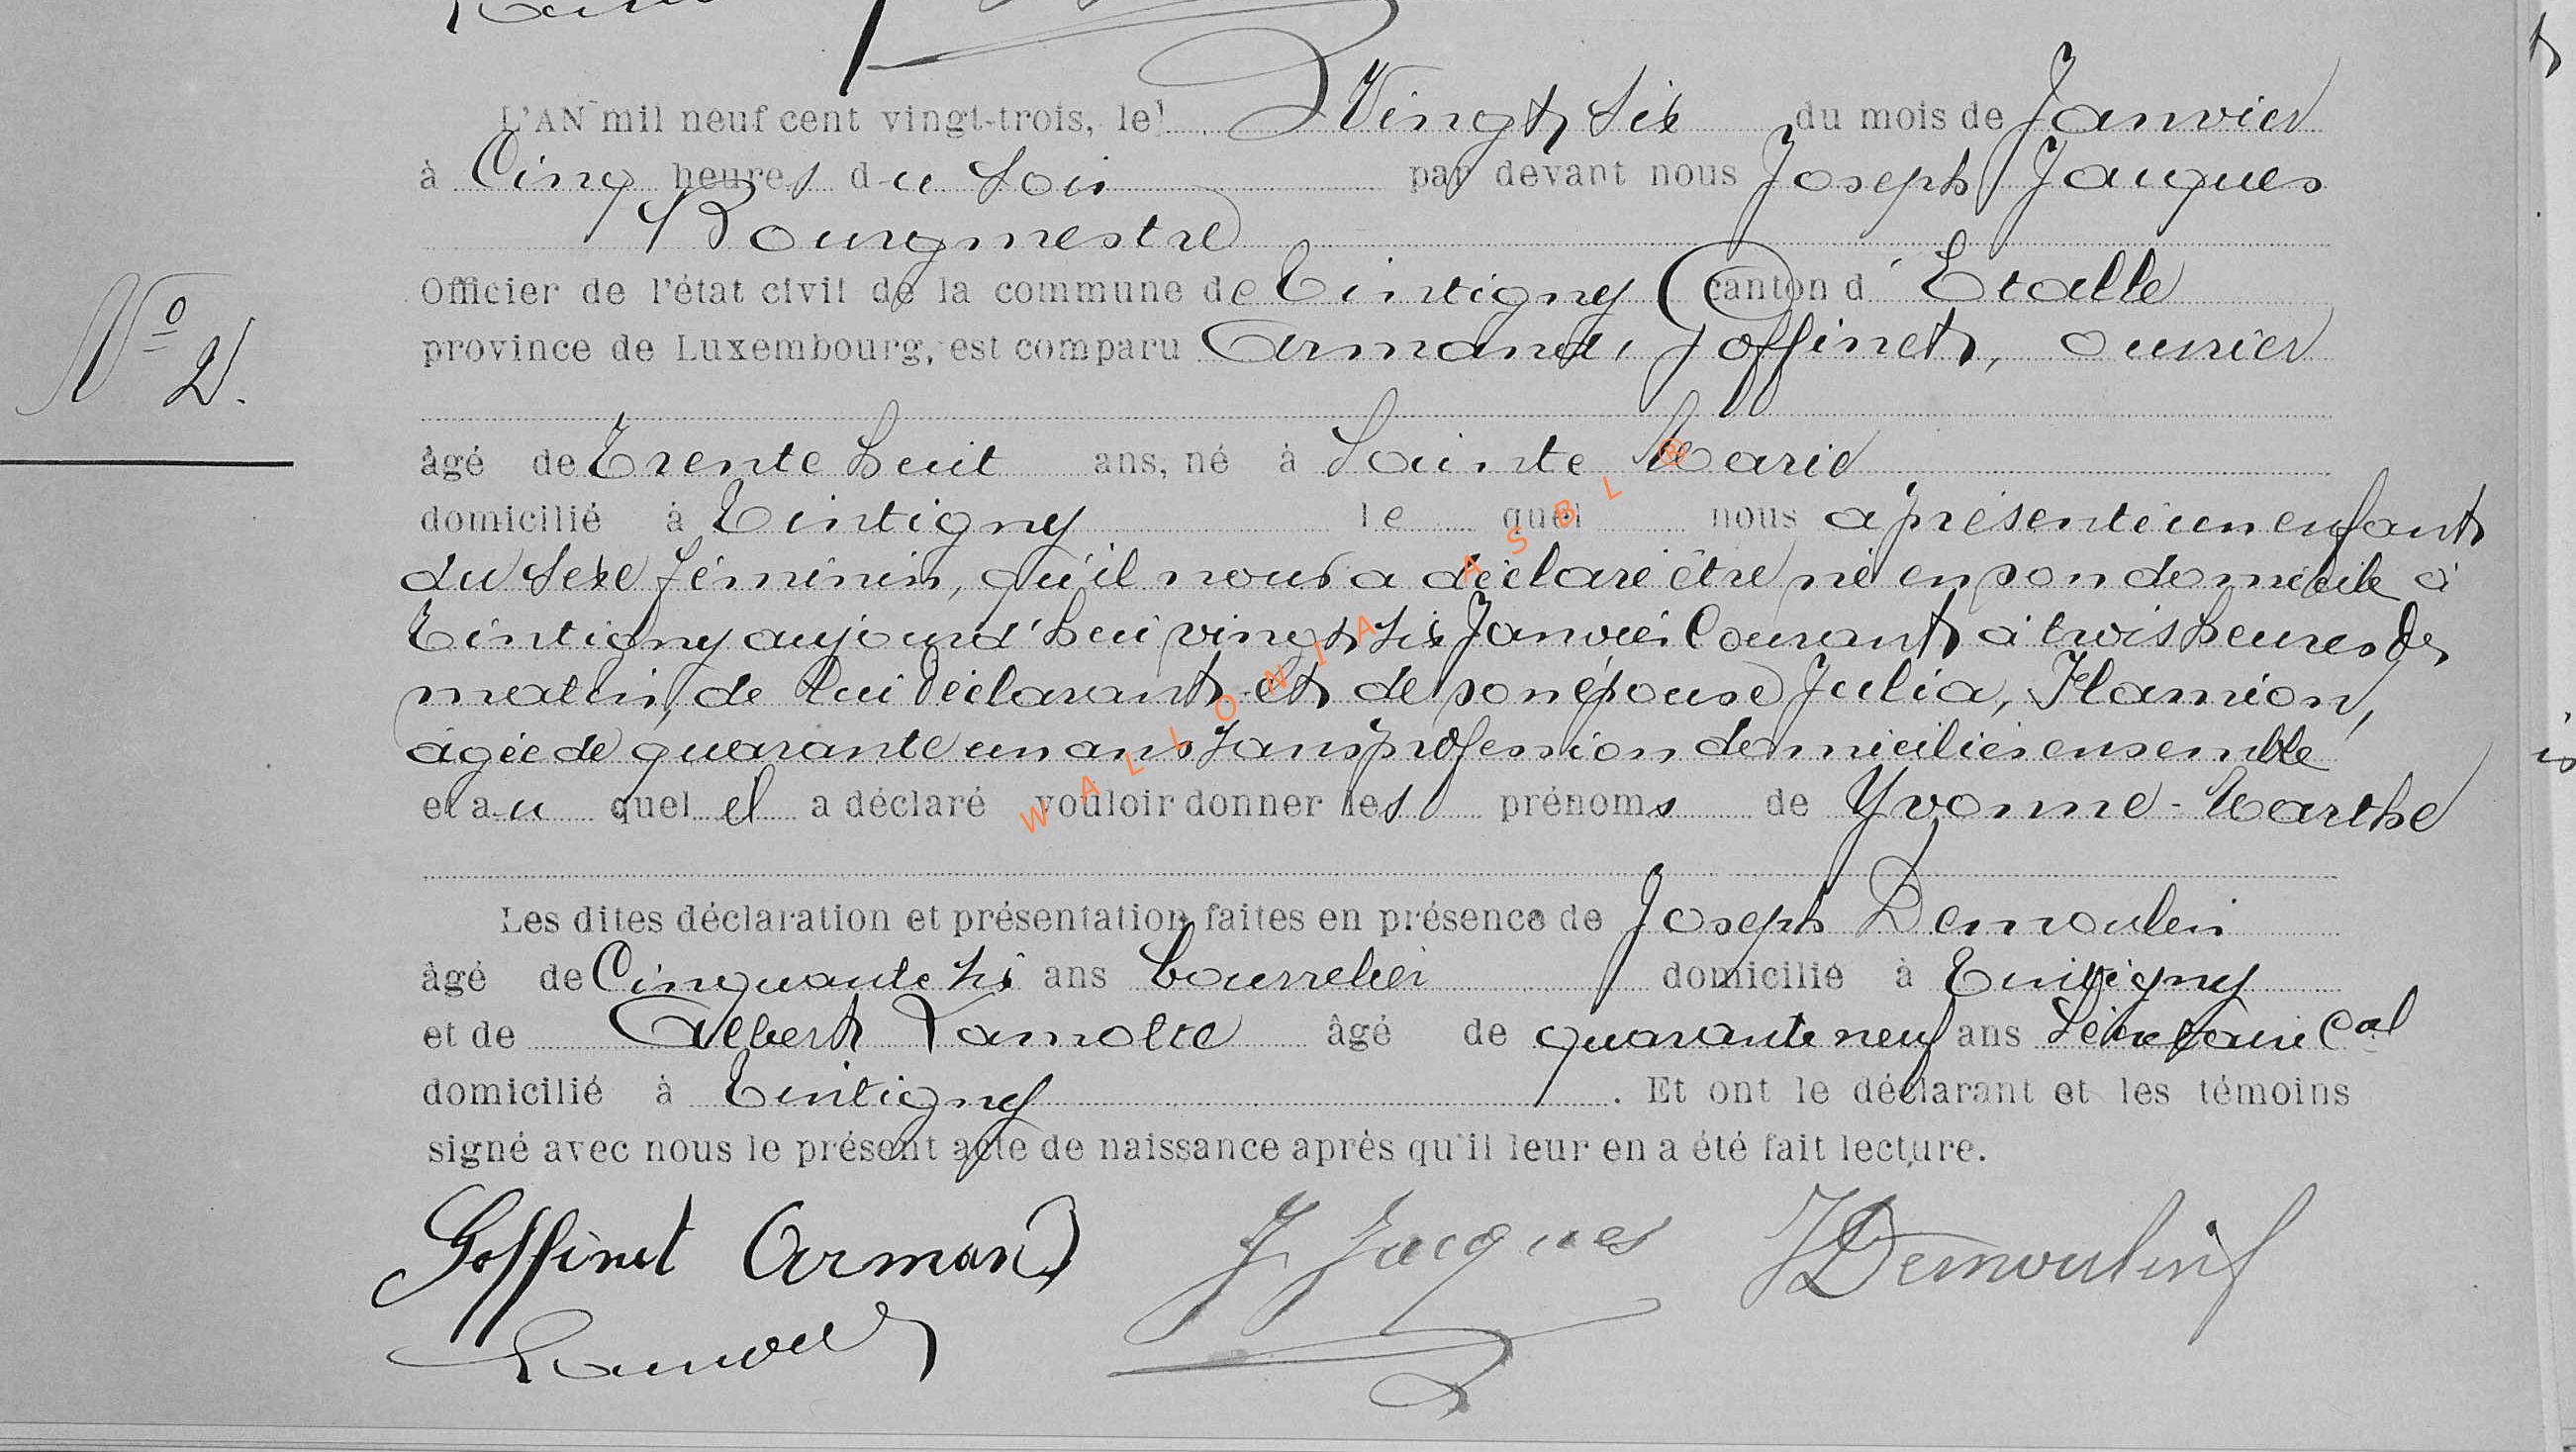 L'AN mil neuf cent vingt-trois, le Vingt six du mois de Janvier
à Cinq heures du soir par devant nous Joseph Jacques
Bourgmestre
Officier de l'état civil de la commune de Tintigny canton d'Etalle
province de Luxembourg, est comparu Armand, Goffinet, ouvrier
N° 2.
âgé de Trente huit ans, né à Sainte Marie
domicilié à Tintigny le quel nous a présenté un enfant
du sexe féminin, qu'il nous a déclaré être né en son domicile à
Tintigny aujourd'hui vingt six Janvier Courant à trois heures du
matin, de lui déclarant et de son épouse Julia, Hamion,
âgée de quarante un ans sans profession domiciliés ensemble
et au quel il a déclaré vouloir donner les prénoms de Yvonne-Marthe
Les dites déclaration et présentation faites en présence de Joseph Demoulin
âgé de Cinquante six ans bourrelier domicilié à Tintigny
et de Albert Lamotte âgé de quarante neuf ans Secrétaire Cal
domicilié à Tintigny. Et ont le déclarant et les témoins
signé avec nous le présent acte de naissance après qu'il leur en a été fait lecture.
Goffinet Armand J Jacques J Demoulin
WALLONIA ASBL ®